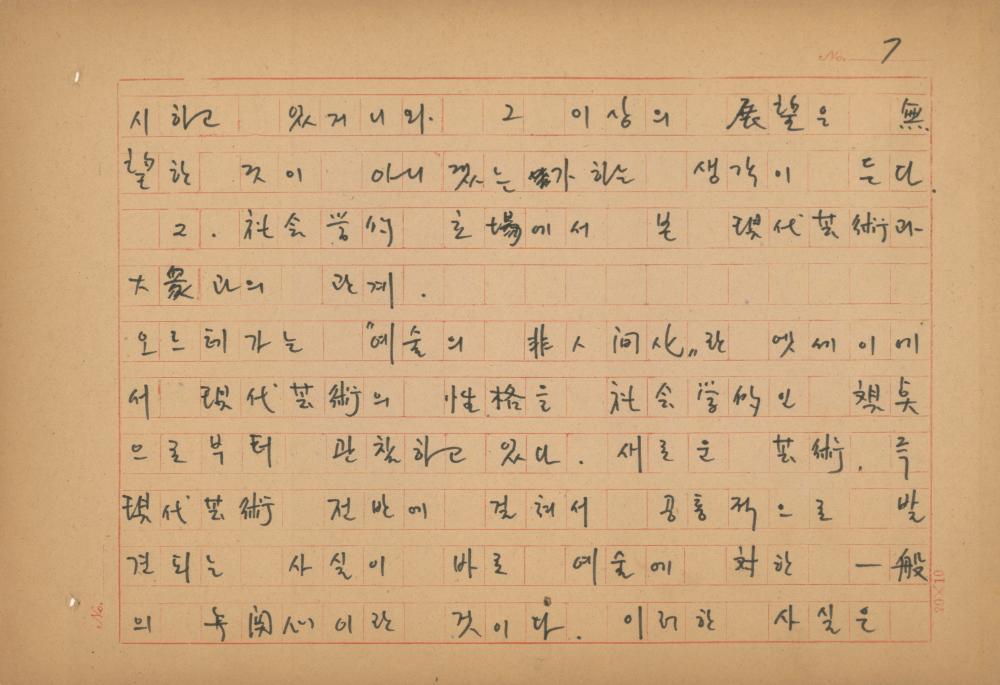 No. 7
시하고 있거니와. 그 이상의 展望은 無
望한 것이 아니겠는가 하는 생각이 든다.
2. 社会学的 立場에서 본 現代芸術과
大衆과의 관계.
오르테가는 "예술의 非人间化"란 엣세이에
서 現代芸術의 性格을 社会学的인 視点
으로부터 관찰하고 있다. 새로운 芸術, 즉
現代芸術 전반에 걸쳐서 공통적으로 발
견되는 사실이 바로 예술에 対한 一般
의 无関心이란 것이다. 이러한 사실은
No.
20×10